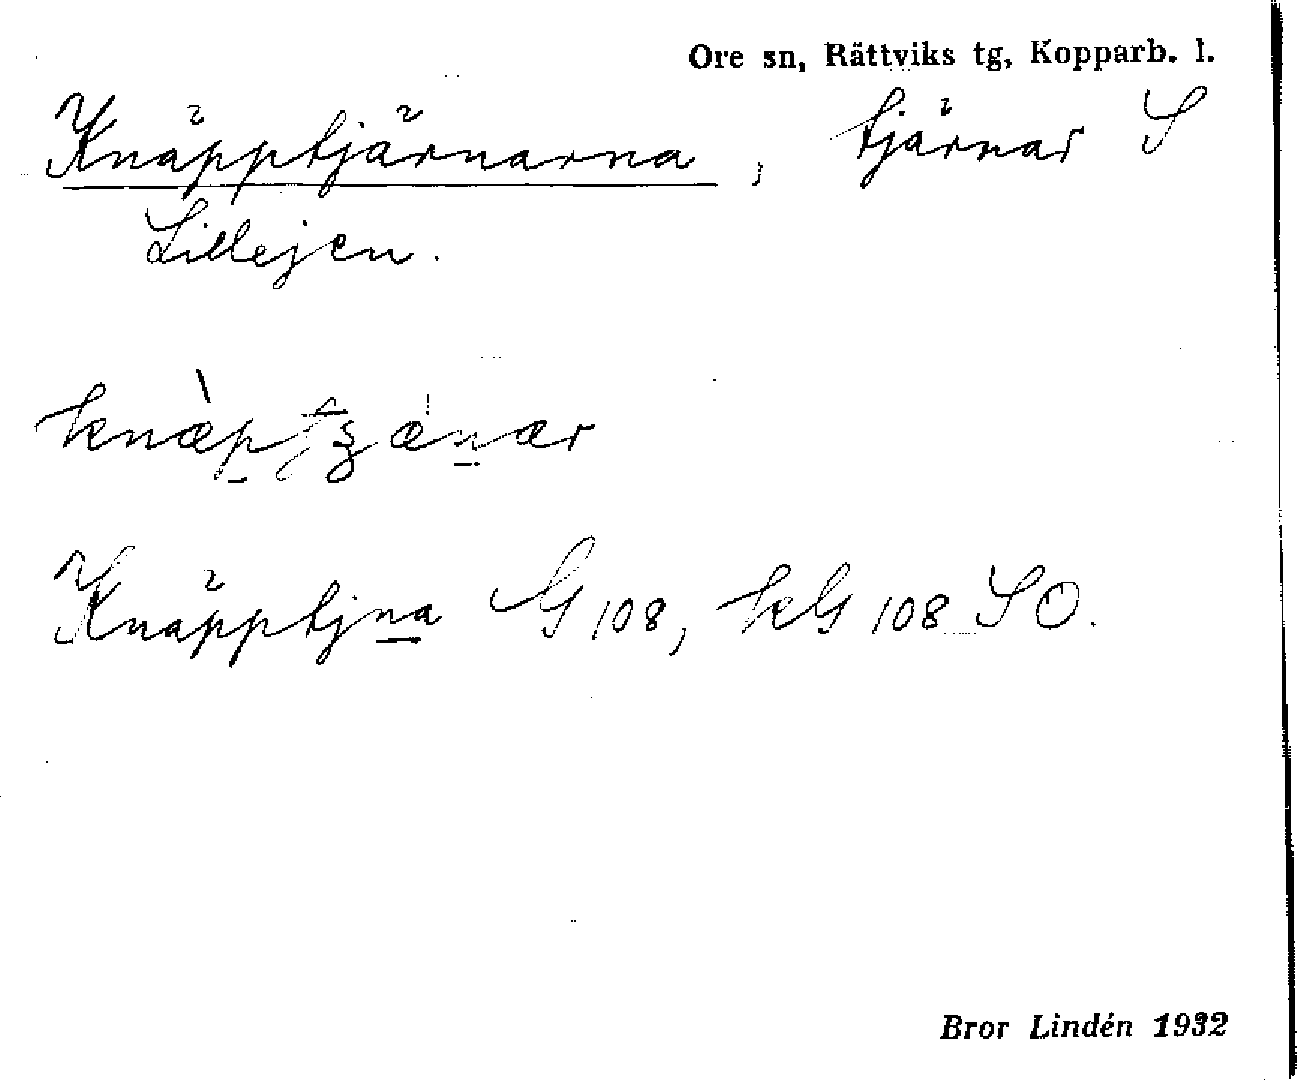 Ore sn, Rättviks tg, Kopparb. l.
Knäpptjärnarna, tjärnar S
Lillejen.
Knäpptjna G 108, kG 108 SO.
Bror Lindén 1932